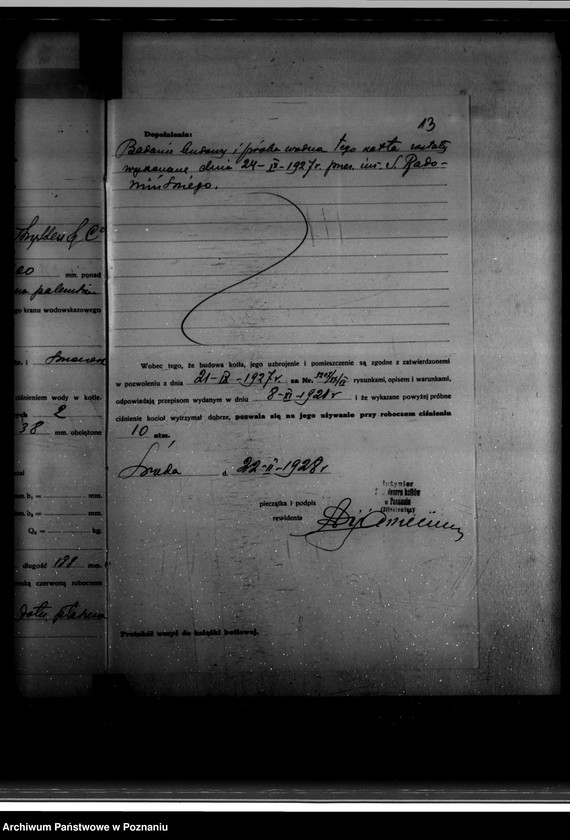 13
Dopełnienia:
Badanie budowy i próba wodna tego kotła zostały
wykonane dnia 24-IX-1927r. przez inż. S. Rado-
mińskiego.
mm. ponad
go kranu wodowskazowego
ciśnieniem wody w kotle.
2
38 mm. obciążone
mm. b₁ = mm.
mm. b₂ = mm.
Q₂ = kg.
długość 188 mm.
czerwoną robocze
Wobec tego, że budowa kotła, jego uzbrojenie i pomieszczenie są zgodne z zatwierdzonemi
w pozwoleniu z dnia 21-IX-1927r. za Nr. rysunkami, opisem i warunkami,
odpowiadają przepisom wydanym w dniu 8-XI-1921r i że wykazane powyżej próbne
ciśnienie kocioł wytrzymał dobrze, pozwala się na jego używanie przy roboczem ciśnieniu
10 atm.
Środa d. 22-II-1928r
Inżynier
dozoru kotłów
w Poznaniu
pieczątka i podpis
rewidenta
Protokół wszyć do książki kotłowej.
Archiwum Państwowe w Poznaniu